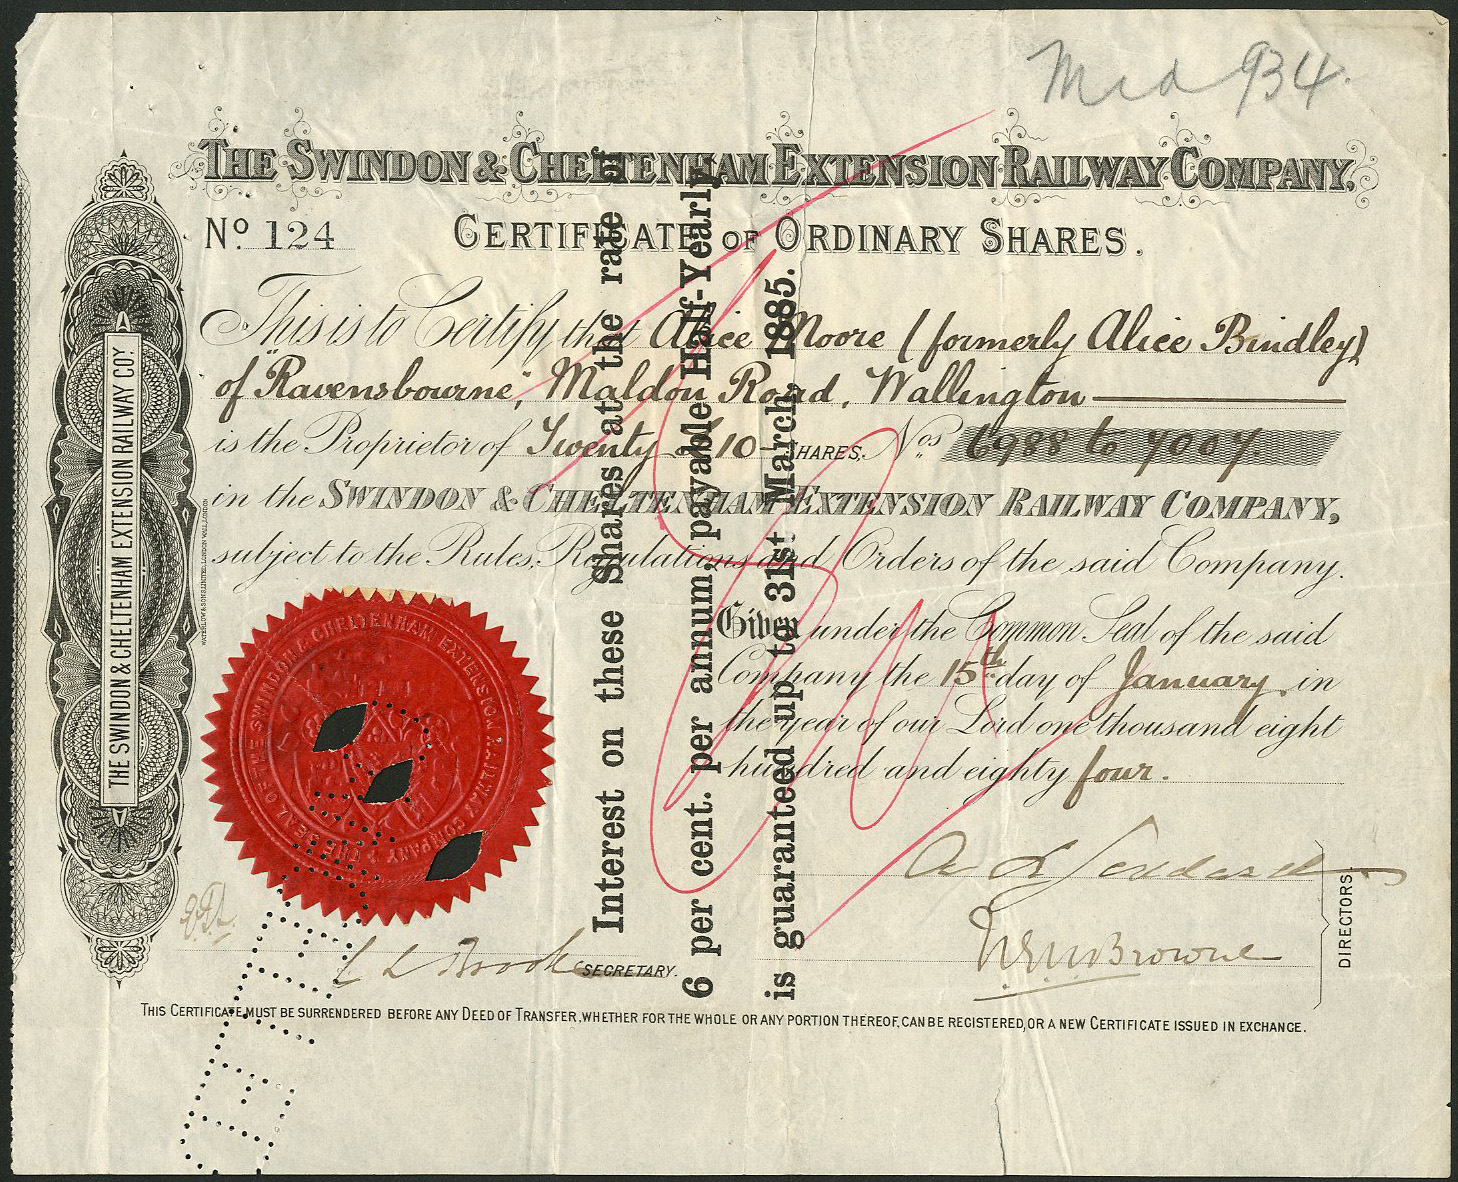 Mrd 934.
THE SWINDON & CHELTENHAM EXTENSION RAILWAY COMPANY.
No. 124 CERTIFICATE OF ORDINARY SHARES.
This is to Certify that Alice Moore (formerly Alice Bindley)
of "Ravensbourne", Maldon Road, Wallington
is the Proprietor of Twenty £10 SHARES. Nos 6988 to 7007.
in the SWINDON & CHELTENHAM EXTENSION RAILWAY COMPANY,
subject to the Rules, Regulations and Orders of the said Company.
Given under the Common Seal of the said
Company the 15th day of January in
the year of our Lord one thousand eight
hundred and eighty four.
Browne
DIRECTORS.
Brooke SECRETARY.
THIS CERTIFICATE MUST BE SURRENDERED BEFORE ANY DEED OF TRANSFER, WHETHER FOR THE WHOLE OR ANY PORTION THEREOF, CAN BE REGISTERED, OR A NEW CERTIFICATE ISSUED IN EXCHANGE.
Interest on these Shares at the rate of
6 per cent. per annum, payable Half-Yearly
is guaranteed up to 31st March, 1885.
THE SWINDON & CHELTENHAM EXTENSION RAILWAY COY.
WATERLOW & SONS LIMITED, LONDON WALL, LONDON
THE SEAL OF THE SWINDON & CHELTENHAM EXTENSION RAILWAY COMPANY